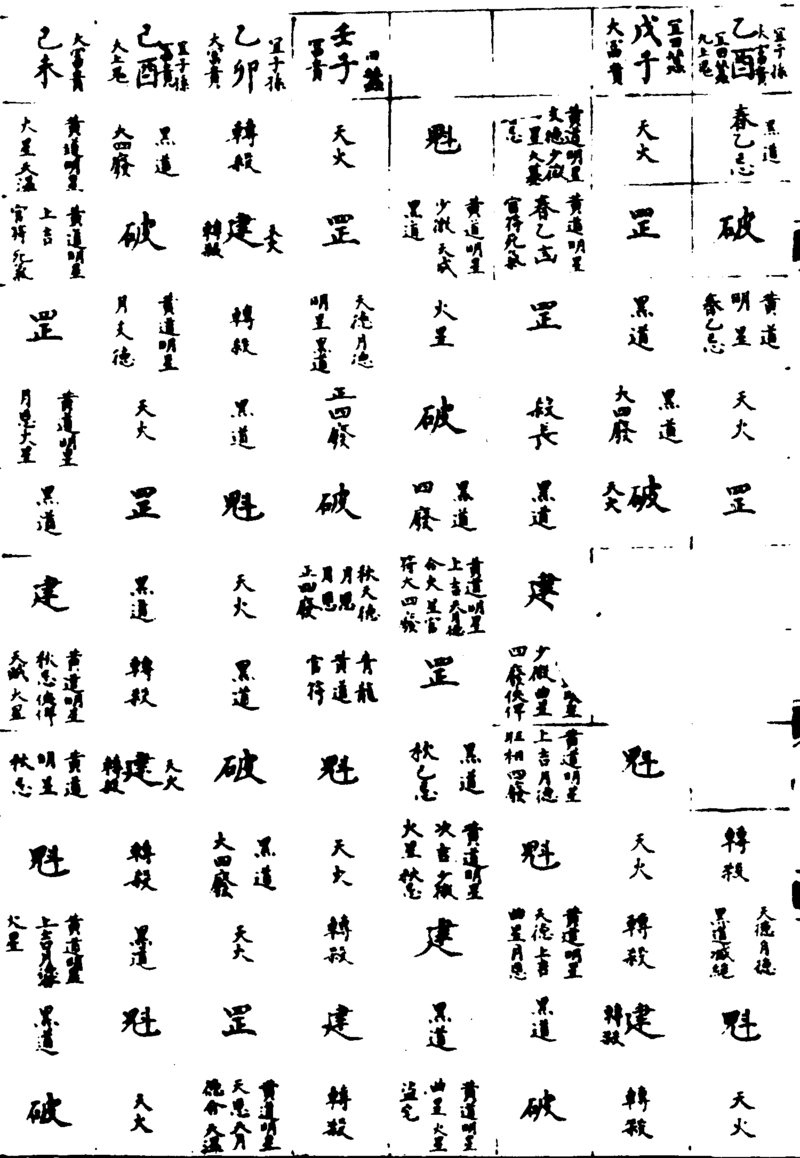 宜子孫
大富貴
乙酉
宜田蚕
黑道
春乙忌
破
黄道
明星
春乙忌
天火
罡
轉殺
天德月德
黑道滅絕
魁
天火
宜田蚕
戊子
大富貴
天火
罡
黑道
黑道
大四廢
破
天火
魁
天火
轉殺
建
轉殺
轉殺
黄道明星
黄道明星
春乙忌
官符死氣
罡
殺長
黑道
建
少微曲星
四廢伏俾
黄道明星
上吉月德
旺相四廢
魁
黄道明星
天德上吉
曲星月恩
黑道
破
魁
黄道明星
少微天成
黑道
火星
破
黑道
四廢
黄道明星
上吉天月德
合火星官
符大四廢
罡
黑道
秋乙忌
黄道明星
次吉少微
火星秋忌
建
黑道
黄道明星
曲星火星
田蚕
壬子
富貴
天火
罡
天德月德
明星黑道
正四廢
破
秋天德
月恩
正四廢
青龍
黄道
官符
魁
天火
轉殺
建
轉殺
宜子孫
乙卯
大富貴
轉殺
天火
建
轉殺
轉殺
黑道
魁
天火
黑道
破
黑道
大四廢
天火
罡
黄道明星
天恩天月
德合天温
宜子孫
富貴
己酉
黑道
大四廢
破
黄道明星
月支德
天火
罡
黑道
轉殺
天火
建
轉殺
轉殺
黑道
魁
天火
大富貴
己未
黄道明星
火星天温
黄道明星
上吉
官符死氣
罡
黄道明星
月恩火星
黑道
建
黄道明星
秋忌伏俾
天賊火星
黄道
明星
秋忌
魁
黄道明星
火星
黑道
破